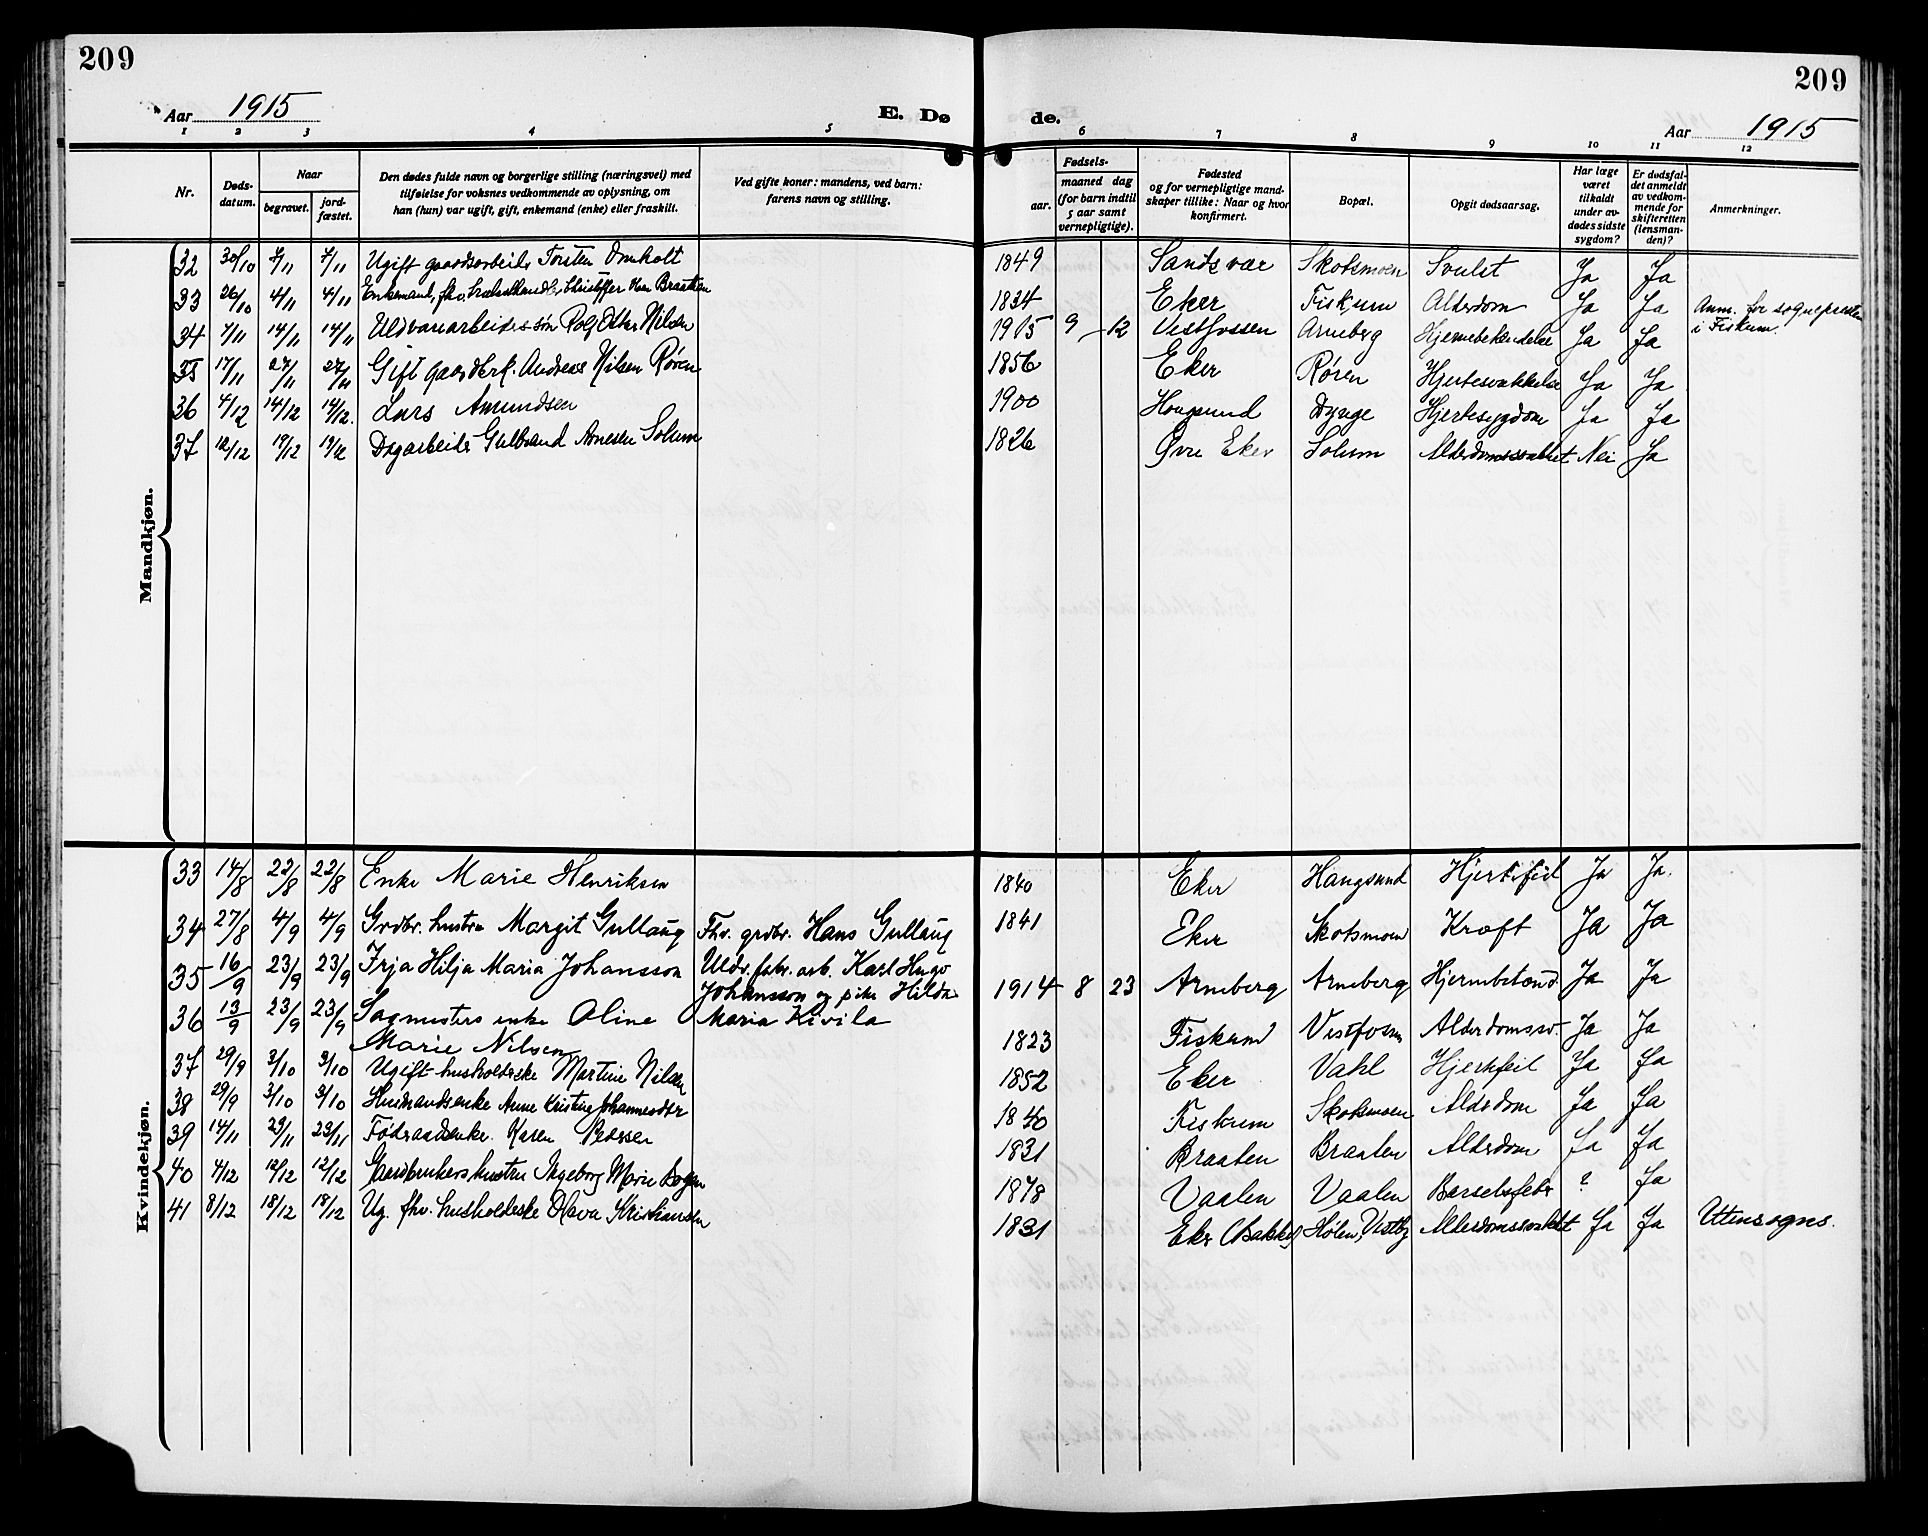 209
209
Aar 1915
E. Dø
de.
Aar 1915
1 2 3 4 5 6 7 8 9 10 11 12
Nr.
Døds-
datum.
Naar
begravet.
jord-
fæstet.
Den dødes fulde navn og borgerlige stilling (næringsvei) med
tilføielse for voksnes vedkommende av oplysning, om
han (hun) var ugift, gift, enkemand (enke) eller fraskilt.
Ved gifte koner: mandens, ved barn:
farens navn og stilling.
Fødsels-
aar.
maaned dag
(for barn indtil
5 aar samt
vernepligtige).
Fødested
og for vernepligtige mand-
skaper tillike: Naar og hvor
konfirmert.
Bopæl.
Opgit dødsaarsag.
Har læge
været
tilkaldt
under av-
dødes sidste
sygdom?
Er dødsfal-
det anmeldt
av vedkom-
mende for
skifteretten
(lensman-
den)?
Anmerkninger.
Mandkjøn.
32 30/10 7/11 7/11 Ugift gaardsarbeider Torsten Omholt 1849 Sandsvær Skotsmoen Svulst Ja Ja
33 26/10 4/11 4/11 Enkemand, fhv. Kristoffer Braaten 1834 Eker Fiskum Alderdom Ja Ja Anm. for sognepresten
i Fiskum.
34 7/11 14/11 14/11 Uldvarearbeiders søn Rolf Nilsen 1915 9 12 Vestfossen Arneberg Hjernebetændelse Ja Ja
35 17/11 27/11 27/11 Gift gaardbrk. Andreas Nilsen Røren 1856 Eker Røren Hjertesvækkelse Ja Ja
36 4/12 14/12 14/12. Lars Amundsen 1900 Hougsund Dynge Hjertesygdom Ja Ja
37 12/12 19/12 19/12 Dagarbeider Gulbrand Arnesen Solum 1826 Øvre Eker Solum Alderdomssvakhet Nei Ja
Kvindekjøn.
33 14/8 22/8 22/8 Enke Marie Henriksen 1840 Eker Haugsund Hjertefeil Ja Ja.
34 27/8 4/9 4/9 Grdbr. hustru Margit Gullaug Fhv. grdbr. Hans Gullaug 1841 Eker Skotsmoen Kræft Ja Ja
35 16/9 23/9 23/9 Irja Hilja Maria Johansson Uldv. fabr. arb. Karl Hugo
Johansson og pike Hilda
Maria Kivila 1914 8 23 Arneberg Arneberg Hjernebetænd. Ja Ja
36 13/9 23/9 23/9 Sagmesters enke Oline
Marie Nilsen 1823 Fiskum Vestfossen Alderdomssv. Ja Ja
37 29/9 3/10 3/10 Ugift husholderske Martine Nilsen 1852 Eker Vahl Hjertefeil Ja Ja
38 29/9 3/10 3/10 Husmandsenke Anne Kristine Johannesdtr 1840 Fiskum Skotsmoen Alderdom Ja Ja
39 14/11 23/11 23/11 Føderaadsenke. Karen Pedersen 1831 Braaten Braaten Alderdom Ja Ja
40 4/12 12/12 12/12 Gaardbrukers hustru Ingeborg Marie 1878 Vaalen Vaalen Barselsfeber ? Ja
41 8/12 18/12 18/12 Ug. fhv. husholderske Olava Kristiansen 1831 Eker (Bakke) Hølen, Vestby Alderdomssvakhet Ja Ja Utensogns.